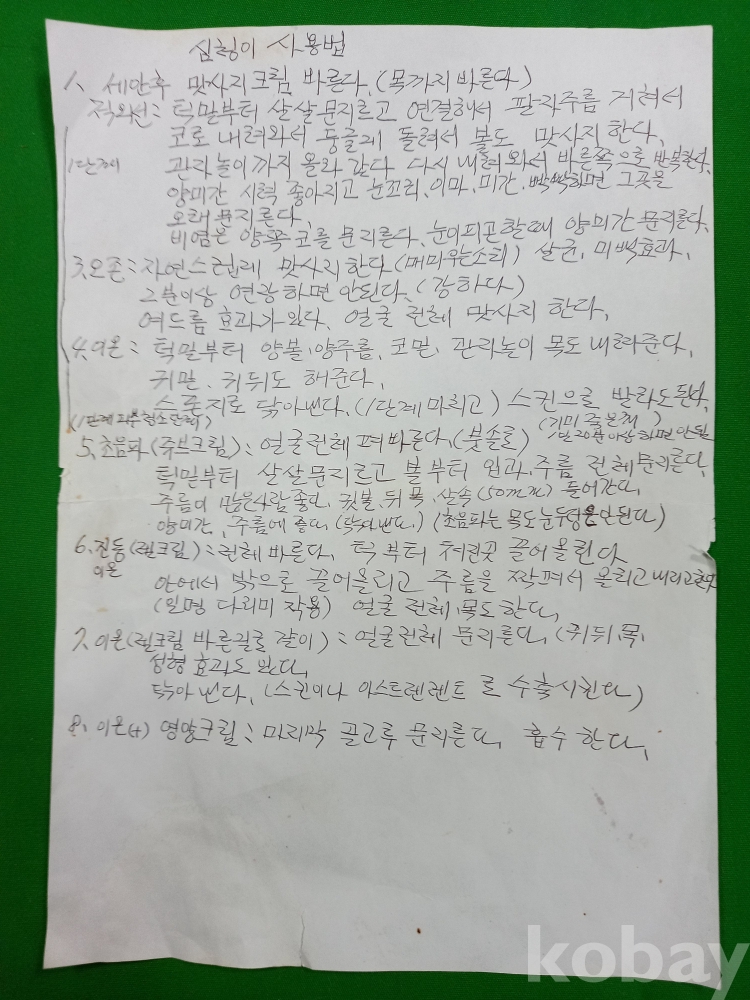 심청이 사용법
1、세안후 맛사지크림 바른다. (목까지 바른다)
적외선: 턱밑부터 살살문지르고 연결해서 팔자주름 거쳐서
코로 내려와서 둥글게 돌려서 볼도 맛사지 한다.
1단계 관자놀이까지 올라 간다 다시 내려와서 바른쪽으로 반복한다.
양미간 시력 좋아지고 눈꼬리. 이마. 미간. 빡빡하면 그곳을
오래 문지른다.
비염은 양쪽 코를 문지른다. 눈이피곤할때 양미간 문지른다.
3. 오존: 자연스럽게 맛사지한다 (매미우는소리) 살균. 미백효과.
2분이상 연광하면 안된다. (강하다)
여드름 효과가 있다. 얼굴 전체 맛사지 한다.
4. 이온: 턱밑부터 양볼. 양주름. 코밑. 관자놀이 목도 내려준다.
귀밑. 귀뒤도 해준다.
스폰지로 닦아낸다. (1단계 마치고) 스킨으로 발라도된다.
(1단계 피부 청소단계) (기미 죽은깨)
5. 초음파 (쥬브크림): 얼굴전체 펴바른다. (붓솔로)
턱밑부터 살살문지르고 볼부터 입과. 주름 전체 문지른다.
주름이 많은사람 좋다. 귓볼. 뒤 목. 살속 들어간다.
양미간. 주름에 좋다. (닦아낸다.) (초음파는 목도 눈두덩은 안된다)
6. 진동 (젤크림): 전체 바른다. 턱부터 처진곳 끌어올린다
이온
안에서 밖으로 끌어올리고 주름을 짝펴서 올리고 내리고한다
(일명 다리미 작용) 얼굴 전체. 목도한다.
7. 이온 (젤크림 바른길로 같이): 얼굴전체 문지른다. (귀뒤. 목.
성형 효과도 있다.
닦아 낸다. (스킨이나 아스트렌젠트로 수축시킨다)
8. 이온(+) 영양크림: 마지막 골고루 문지른다. 흡수 한다.
kobay